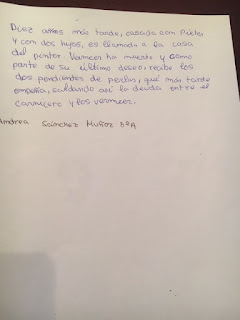 Diez años más tarde, casada con Pieter
y con dos hijos, es llamada a la casa
del pintor. Vermeer ha muerto y como
parte de su último deseo, recibe los
dos pendientes de perlas, que más tarde
empeña, saldando así la deuda entre el
carnicero y los Vermeer.
Andrea Sánchez Muñoz 3ºA